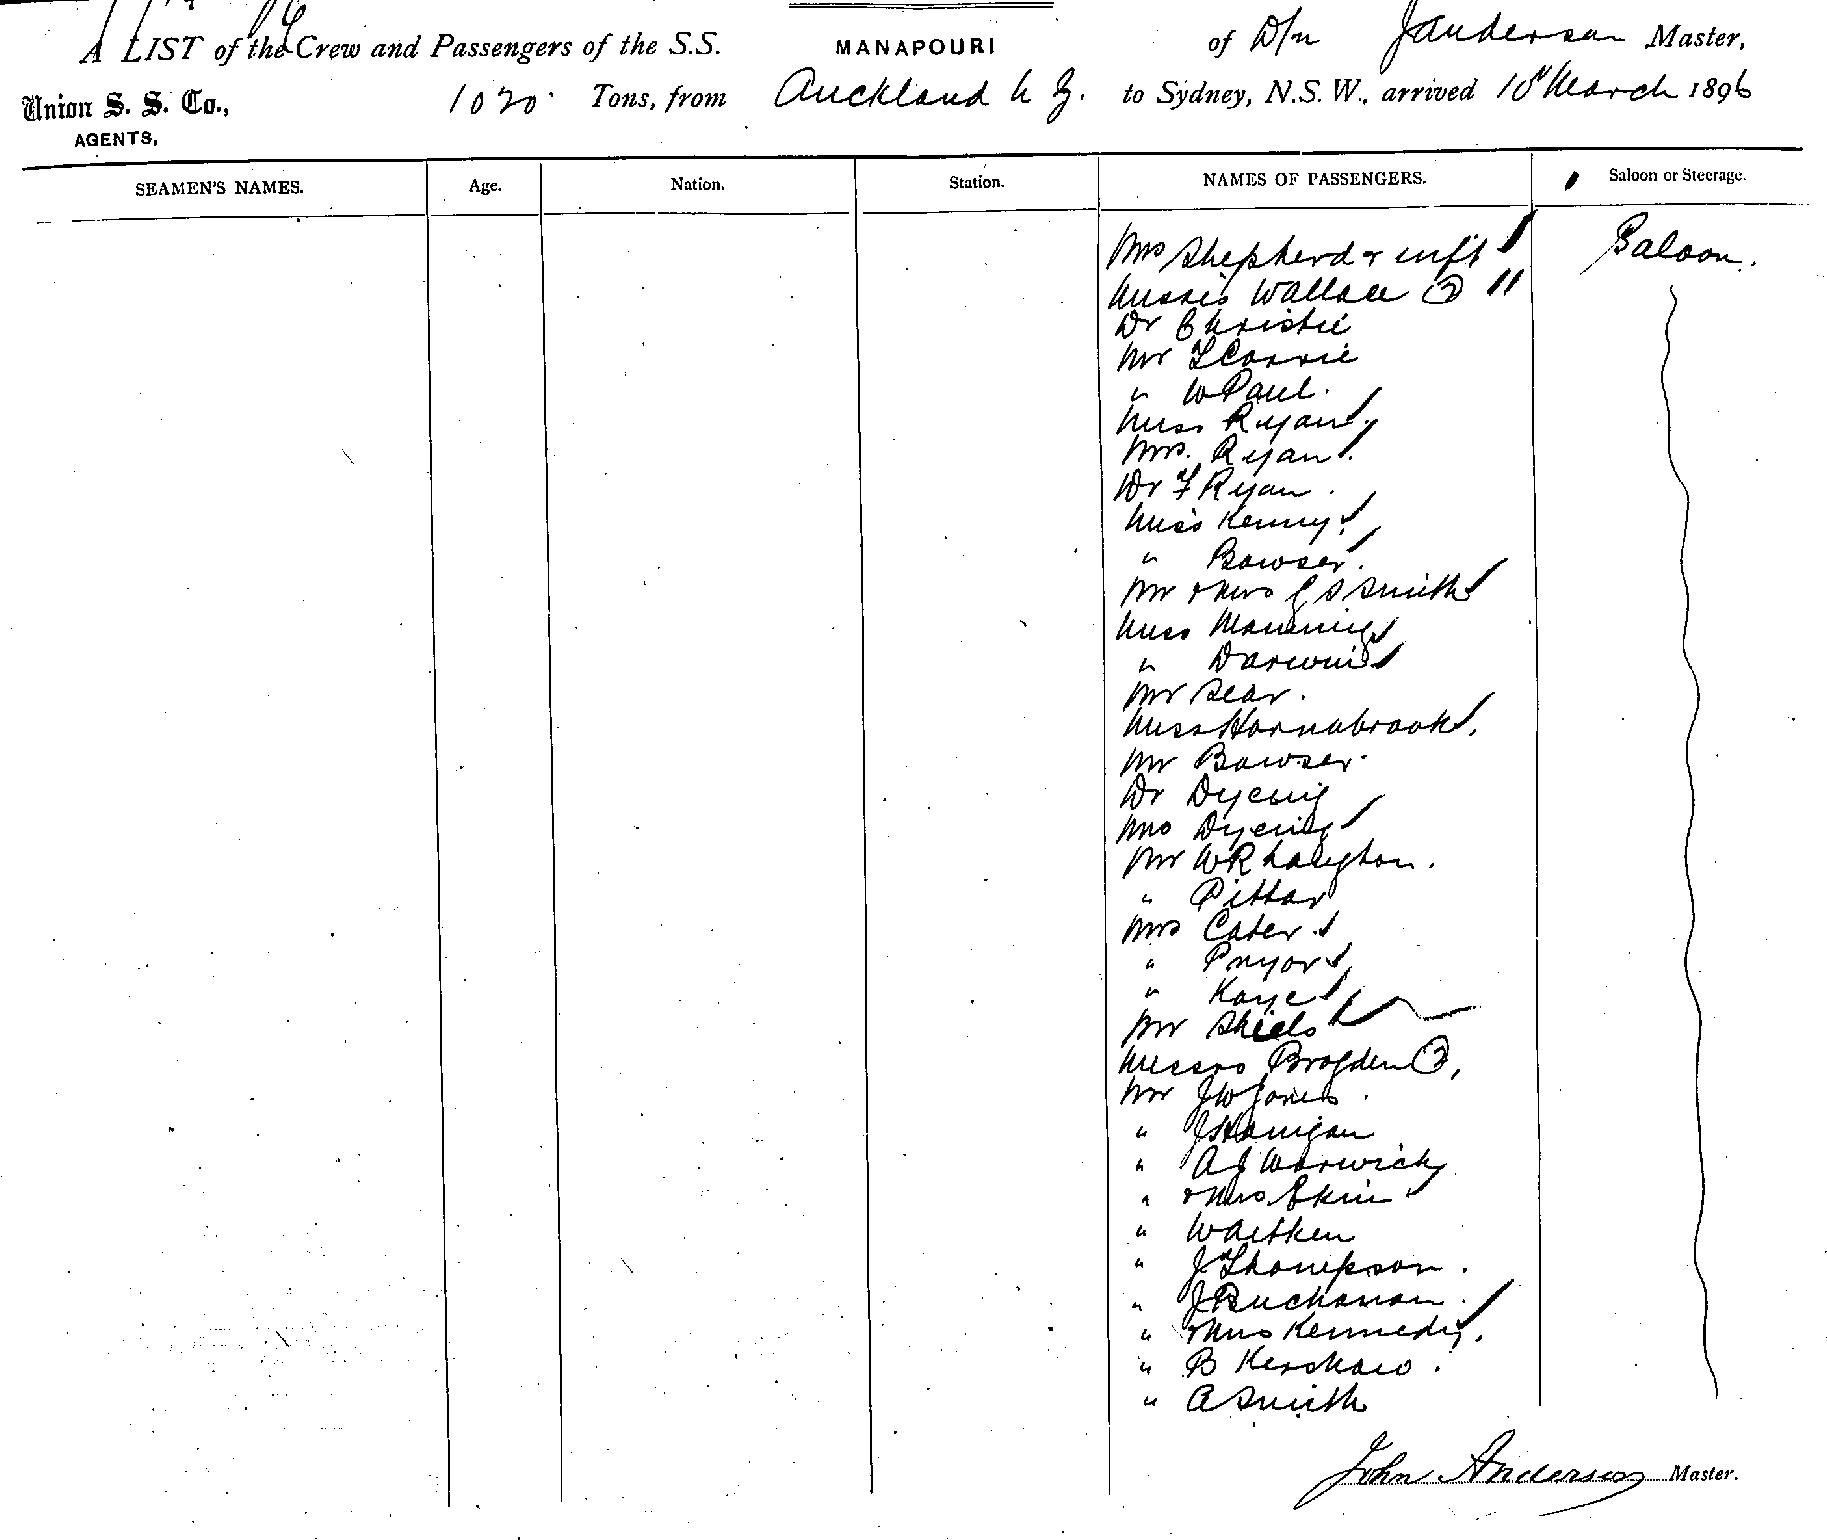 A LIST of the Crew and Passengers of the S.S. MANAPOURI of D/n J Anderson Master,
Union S. S. Co., 1020 Tons, from Auckland N Z. to Sydney, N.S.W., arrived 10th March 1896
AGENTS,
SEAMEN'S NAMES. Age. Nation. Station. NAMES OF PASSENGERS. Saloon or Steerage.
Mrs Shepherd & inft Saloon.
Misses Wallace 2
Dr Christie
Mr T Corrie
" W Paul.
Miss Ryan
Mrs. Ryan
Dr F Ryan.
Miss Kenny
" Bowser.
Mr & Mrs G S Smith
Miss Manning
" Darwin
Mr Sear.
Miss Hornabrook.
Mr Bowser.
Dr Dyenig
Mrs Dyenig
Mr W R Laughton.
" Pittar
Mrs Cater.
" Pryor
" Kaye
Mr Shiels
Messrs Brogden
Mr J W Jones.
" J Hanigan
" A J Warwick
" & Mrs Ekin
" W Aitken
" J Thompson.
" J Buchanan.
" & Mrs Kennedy.
" B Kershaw.
" A Smith
John Anderson Master.